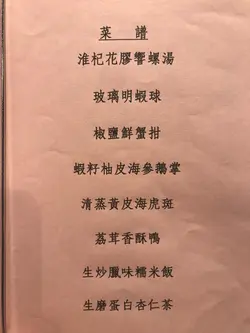 菜譜
淮杞花膠響螺湯
玻璃明蝦球
椒鹽鮮蟹拑
蝦籽柚皮海參鵝掌
清蒸黃皮海虎斑
荔茸香酥鴨
生炒臘味糯米飯
生磨蛋白杏仁茶